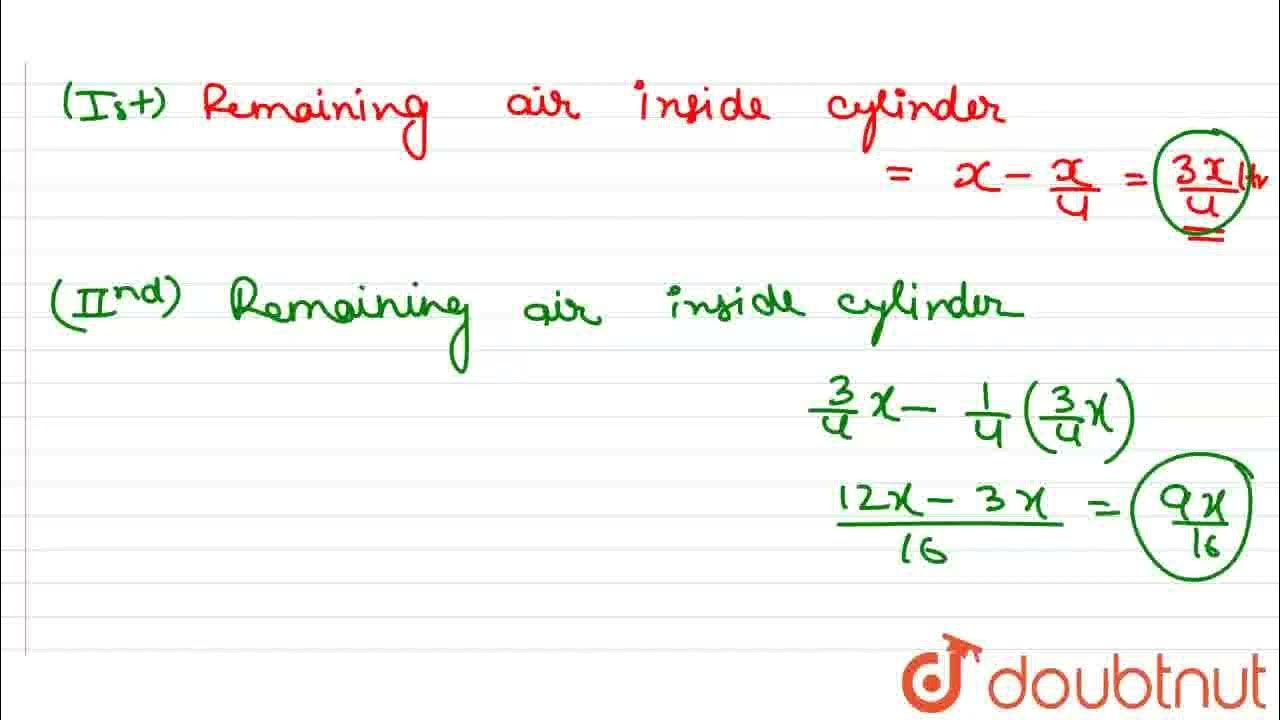 (Ist) Remaining air inside cylinder
= x - x/4 = 3x/4 ltr
(IInd) Remaining air inside cylinder
3/4 x - 1/4 (3/4 x)
12x - 3x / 16 = 9x/16
doubtnut